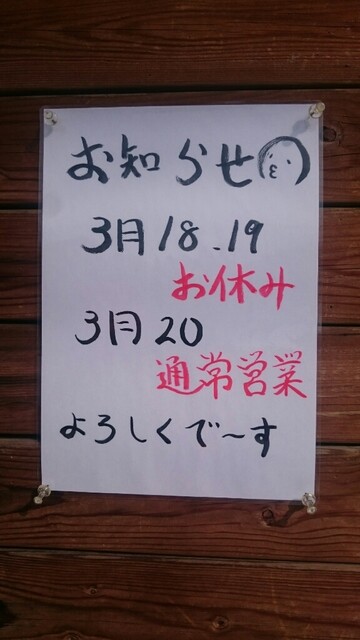 お知らせ
3月18.19
お休み
3月20
通常営業
よろしくで〜す